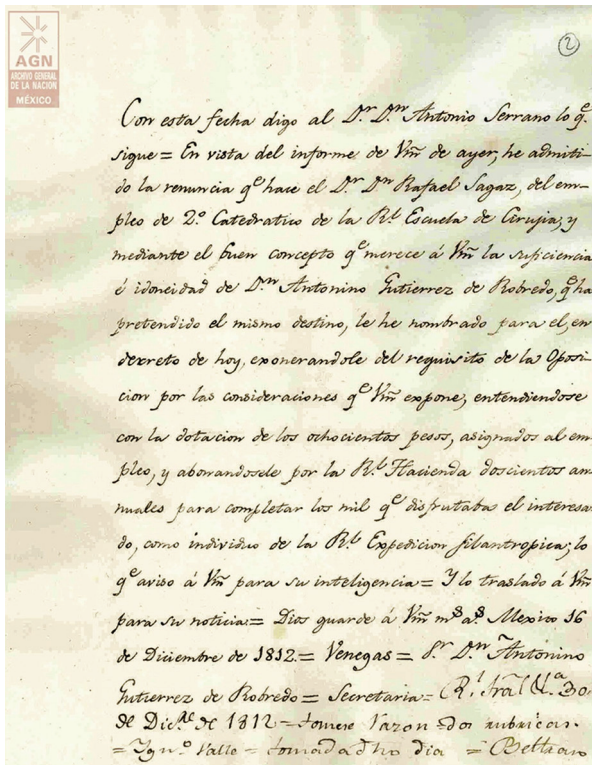 2
AGN
ARCHIVO GENERAL
DE LA NACIÓN
MÉXICO
Con esta fecha digo al D.r D.n Antonio Serrano lo q.e
sigue = En vista del informe de Vm̃ de ayer, he admiti-
do la renuncia q.e hace el D.r D.n Rafael Sagaz, del em-
pleo de 2.o Catedratico de la R.l Escuela de Cirujia; y
mediante el buen concepto q.e merece á Vm̃ la suficiencia
é idoneidad de D.n Antonino Gutierrez de Robredo, q.e ha
pretendido el mismo destino, le he nombrado para el, en
decreto de hoy, exonerandole del requisito de la Oposi-
cion por las consideraciones q.e Vm̃ expone; entendiendose
con la dotacion de los ochocientos pesos, asignados al em-
pleo, y abonandosele por la R.l Hacienda doscientos an-
nuales para completar los mil q.e disfrutaba el interesa-
do, como individuo de la R.l Expedicion filantropica; lo
q.e aviso á Vm̃ para su inteligencia = Y lo traslado á Vm̃
para su noticia = Dios guarde á Vm̃ m.s a.s Mexico 16
de Diciembre de 1812 = Venegas = S.r D.n Antonino
Gutierrez de Robredo = Secretaria = R.l
de Dic.re de 1812 = tomese razon = dos rubricas
= Ygn.o Valle = tomada dho dia = Beltran